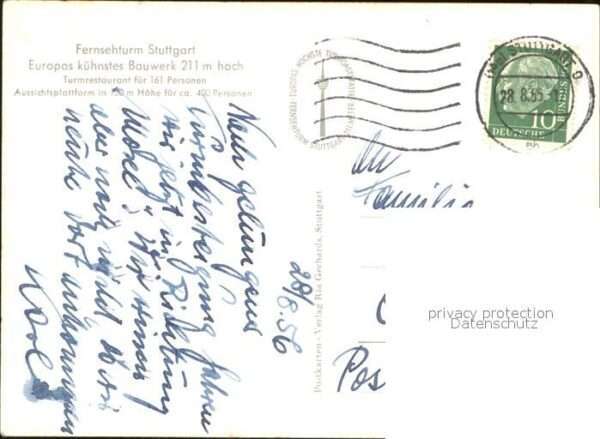 Fernsehturm Stuttgart
Europas kühnstes Bauwerk 211 m hoch
Turmrestaurant für 161 Personen
Aussichtsplattform in 150 m Höhe für ca. 400 Personen
STUTTGART
28.8.56
10
DEUTSCHE BUNDESPOST
28/8.56
Nach gelungener
Turmbesteigung fahren
wir jetzt in Richtung
Mosel. Wir wissen
aber noch nicht, ob wir
heute dort ankommen
An
Familie
Pos
Postkarten-Verlag Ria Gerhards, Stuttgart
privacy protection
Datenschutz